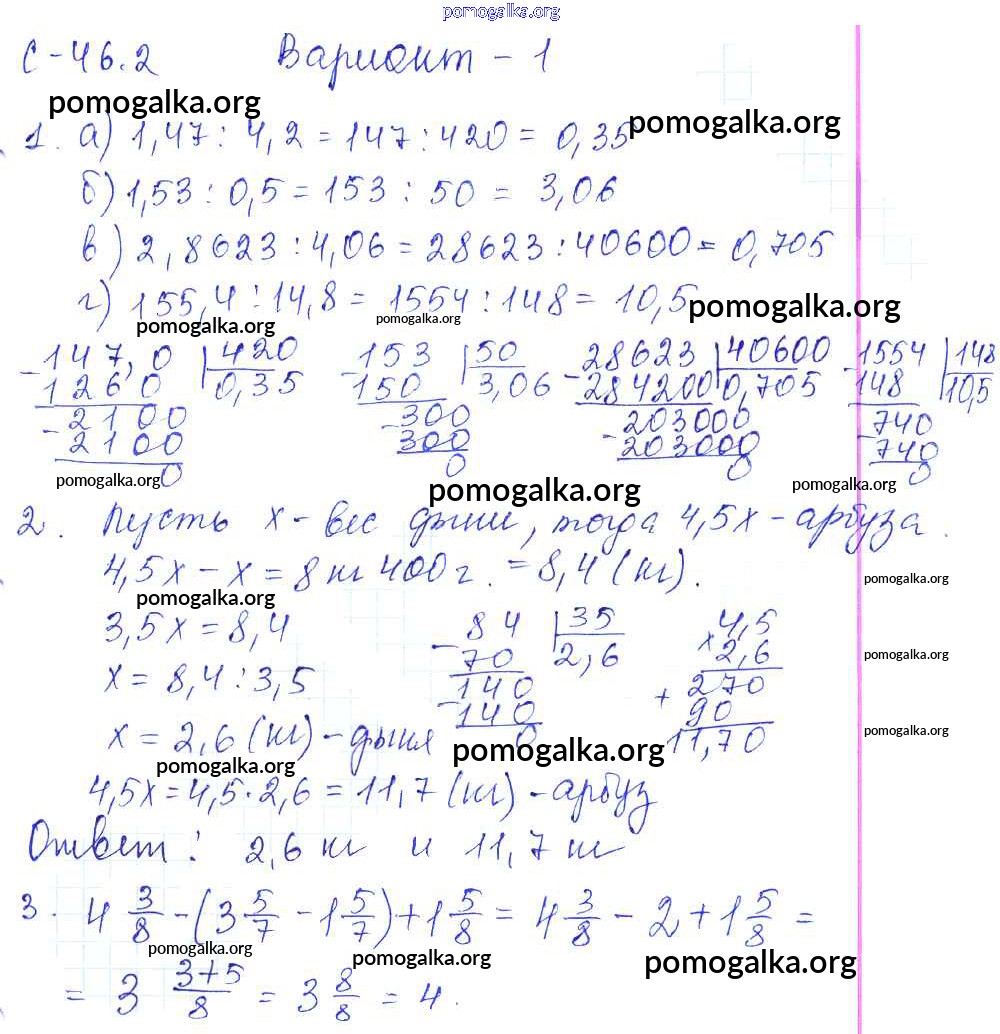 pomogalka.org
С-46.2 Вариант - 1
pomogalka.org
pomogalka.org
1. а) 1,47 : 4,2 = 147 : 420 = 0,35
б) 1,53 : 0,5 = 153 : 50 = 3,06
в) 2,8623 : 4,06 = 28623 : 40600 = 0,705
г) 155,4 : 14,8 = 1554 : 148 = 10,5
pomogalka.org
pomogalka.org
pomogalka.org
-147,0 | 420 -153 | 50 -28623 | 40600 -1554 | 148
1260 0,35 150 3,06 284200 0,705 148 10,5
-2100 -300 -203000 -740
2100 300 203000 740
0 0 0 0
pomogalka.org
pomogalka.org
pomogalka.org
2. Пусть х - вес дыни, тогда 4,5х - арбуза.
4,5х - х = 8 кг 400 г. = 8,4 (кг).
pomogalka.org
pomogalka.org
3,5х = 8,4 -84 | 35 ×4,5
70 2,6 2,6
х = 8,4 : 3,5 -140 +270
140 90
х = 2,6 (кг) - дыня 0 11,70
pomogalka.org
pomogalka.org
pomogalka.org
pomogalka.org
4,5х = 4,5 · 2,6 = 11,7 (кг) - арбуз
Ответ: 2,6 кг и 11,7 кг
3. 4 3/8 - (3 5/7 - 1 5/7) + 1 5/8 = 4 3/8 - 2 + 1 5/8 =
pomogalka.org
pomogalka.org
pomogalka.org
= 3 3+5/8 = 3 8/8 = 4.